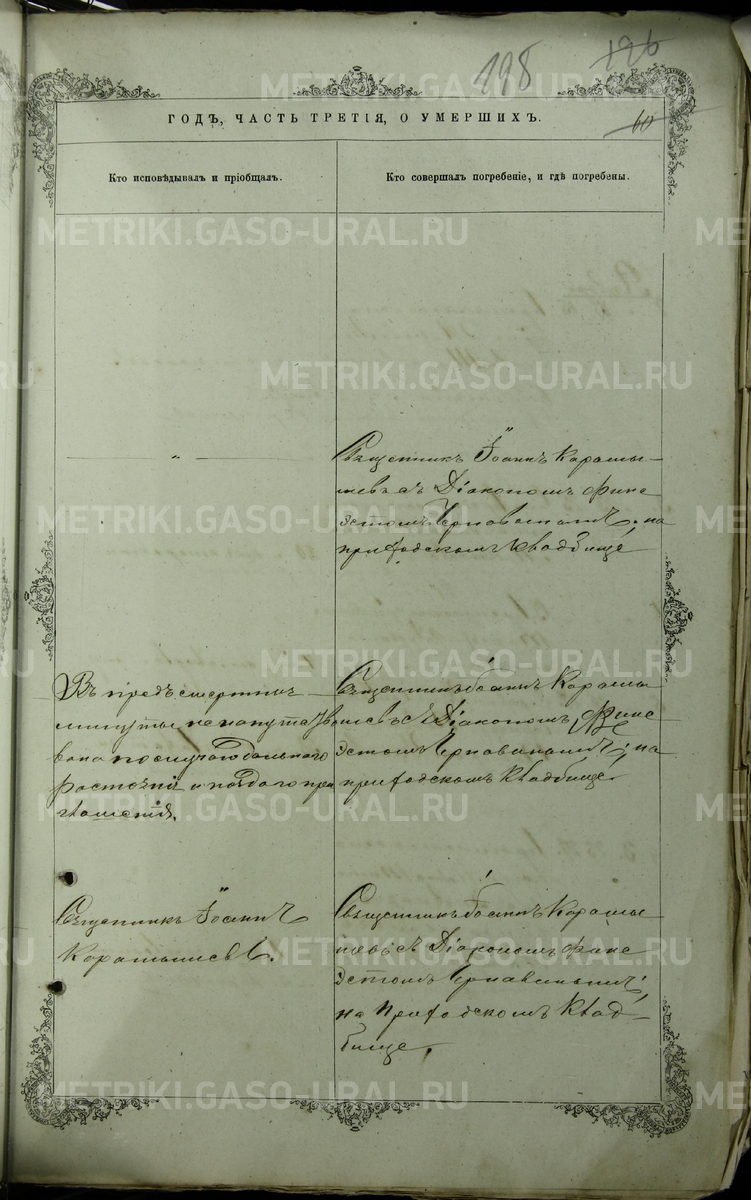 198
126
60
ГОДЪ, ЧАСТЬ ТРЕТІЯ, О УМЕРШИХЪ.
Кто исповѣдывалъ и пріобщалъ.
Кто совершалъ погребеніе, и гдѣ погребены.
"
Священникъ Іоаннъ Карамы-
шевъ съ Діакономъ
на
приходскомъ кладбище
Въ предъсмертныя
минуты не напутство-
вана по случаю дальнаго
растоянія и поздаго при-
глашенія.
Священникъ Іоаннъ Карамы-
шевъ съ Діакономъ
на
приходскомъ кладбище
Священникъ Іоаннъ
Карамышевъ.
Священникъ Іоаннъ Карамы-
шевъ съ Діакономъ
на приходскомъ клад-
бище.
METRIKI.GASO-URAL.RU